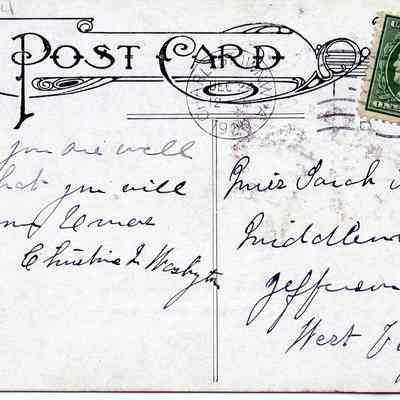 POST CARD
DEC 2
12
you are well
that you will
Xmas
Christine L Washington
Miss Sarah
Middle
Jefferson
West V